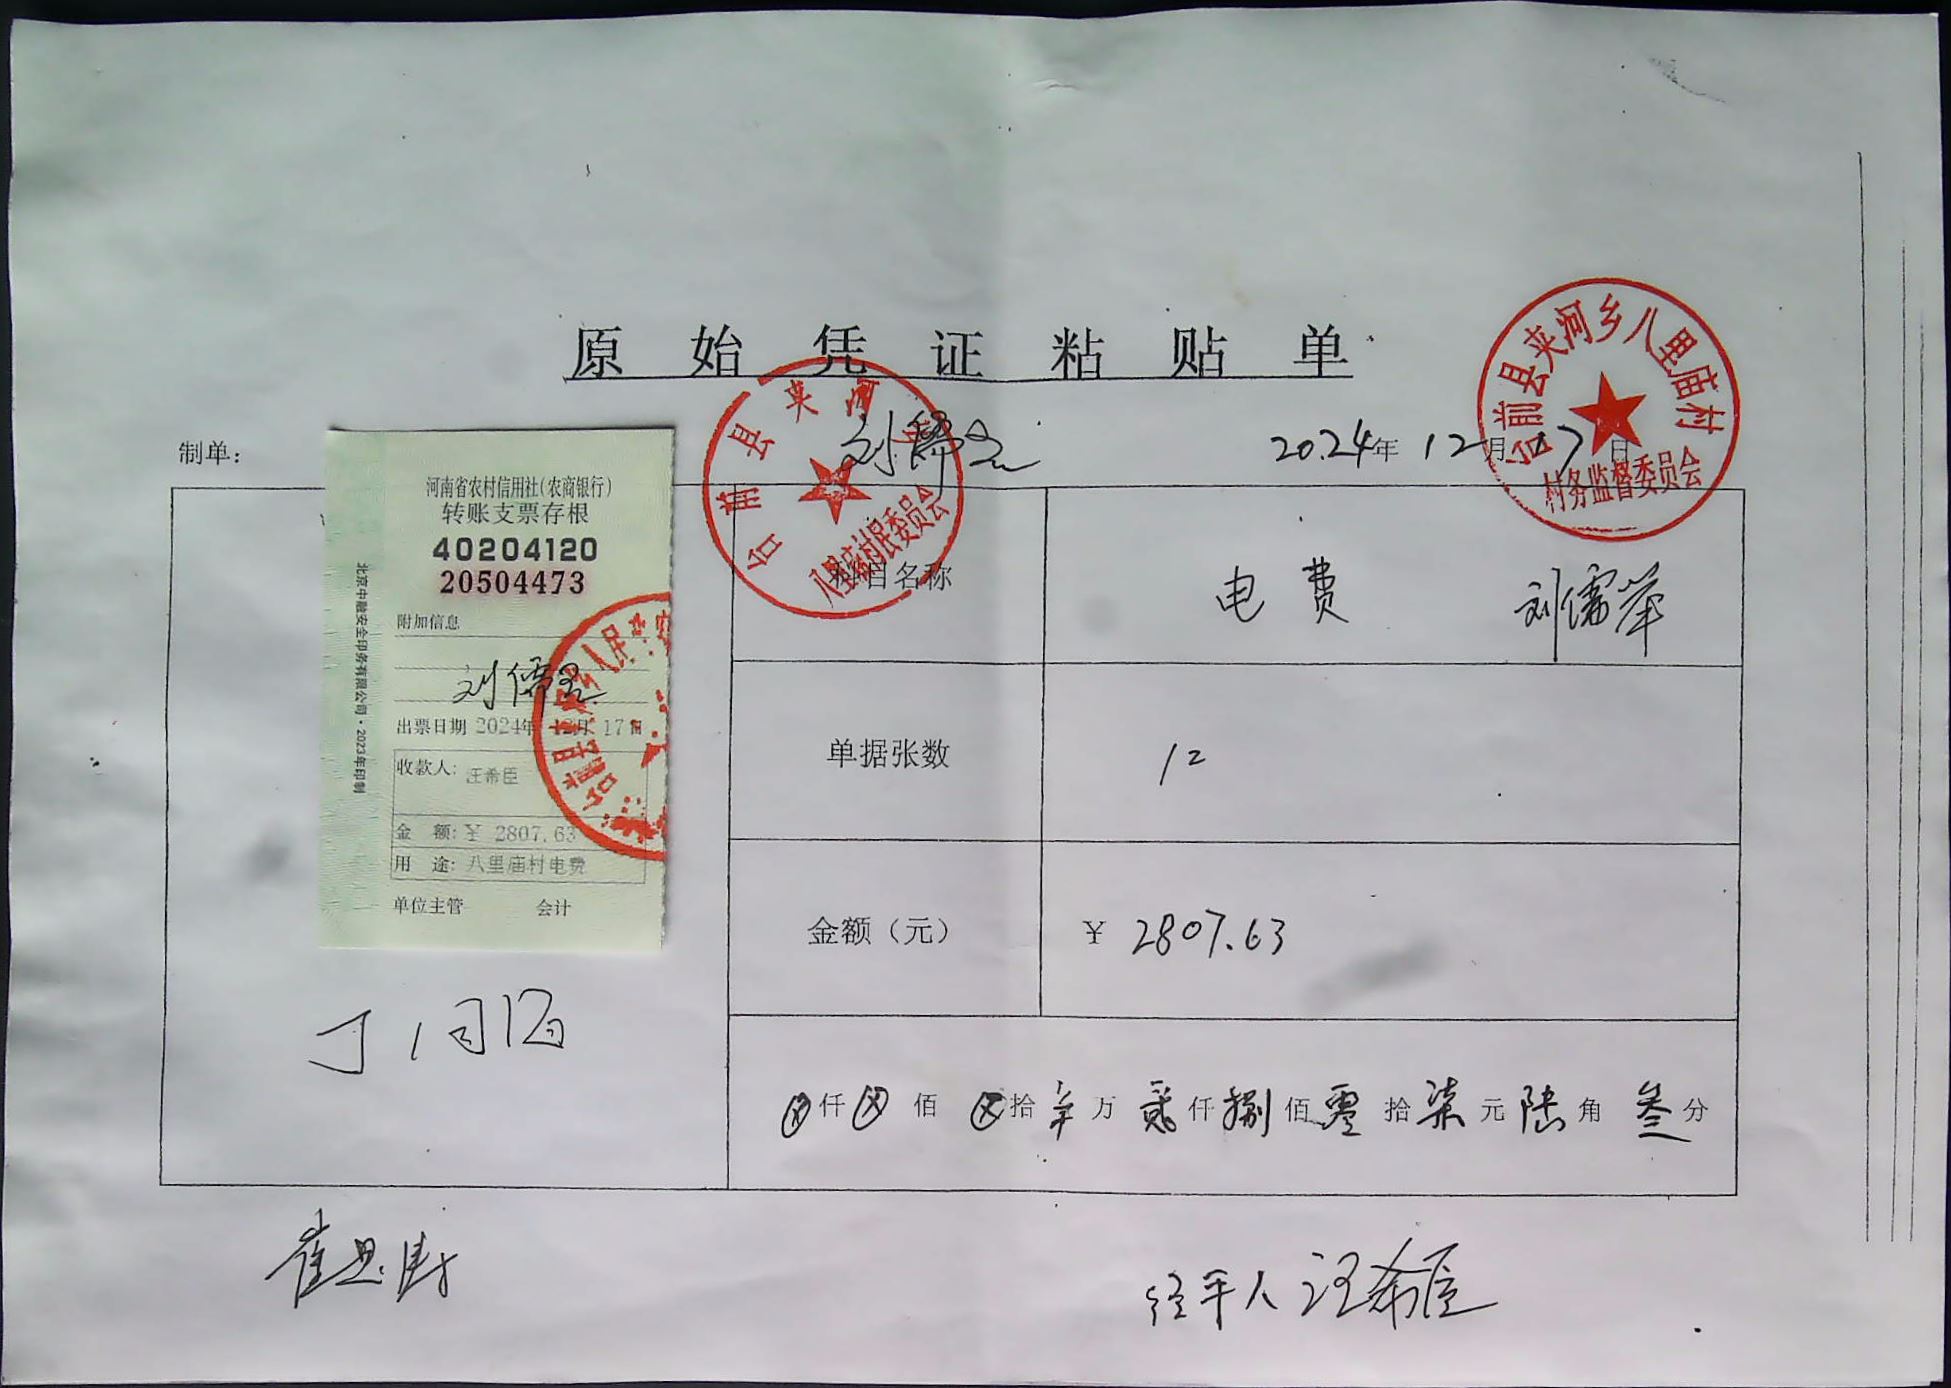 原始凭证粘贴单
制单：
2024年12月17日
台前县夹河乡八里庙村
村务监督委员会
台前县夹河
八里庙村村民委员会
河南省农村信用社(农商银行)
转账支票存根
40204120
20504473
附加信息
出票日期 2024年12月17日
收款人：汪希臣
金 额：¥ 2807.63
用 途：八里庙村电费
单位主管 会计
北京中融安全印务有限公司·2023年印制
目名称 电费 刘儒举
单据张数 12
金额（元） ¥ 2807.63
仟 佰 拾 万 贰仟捌佰零拾柒元陆角叁分
经手人 汪希臣